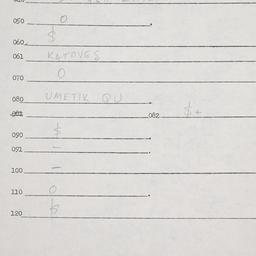 050 0
060 $
061 KATOVES
070 0
080 UMETIK QU
081 082 $+
090 $
091 -
100 -
110 0
120